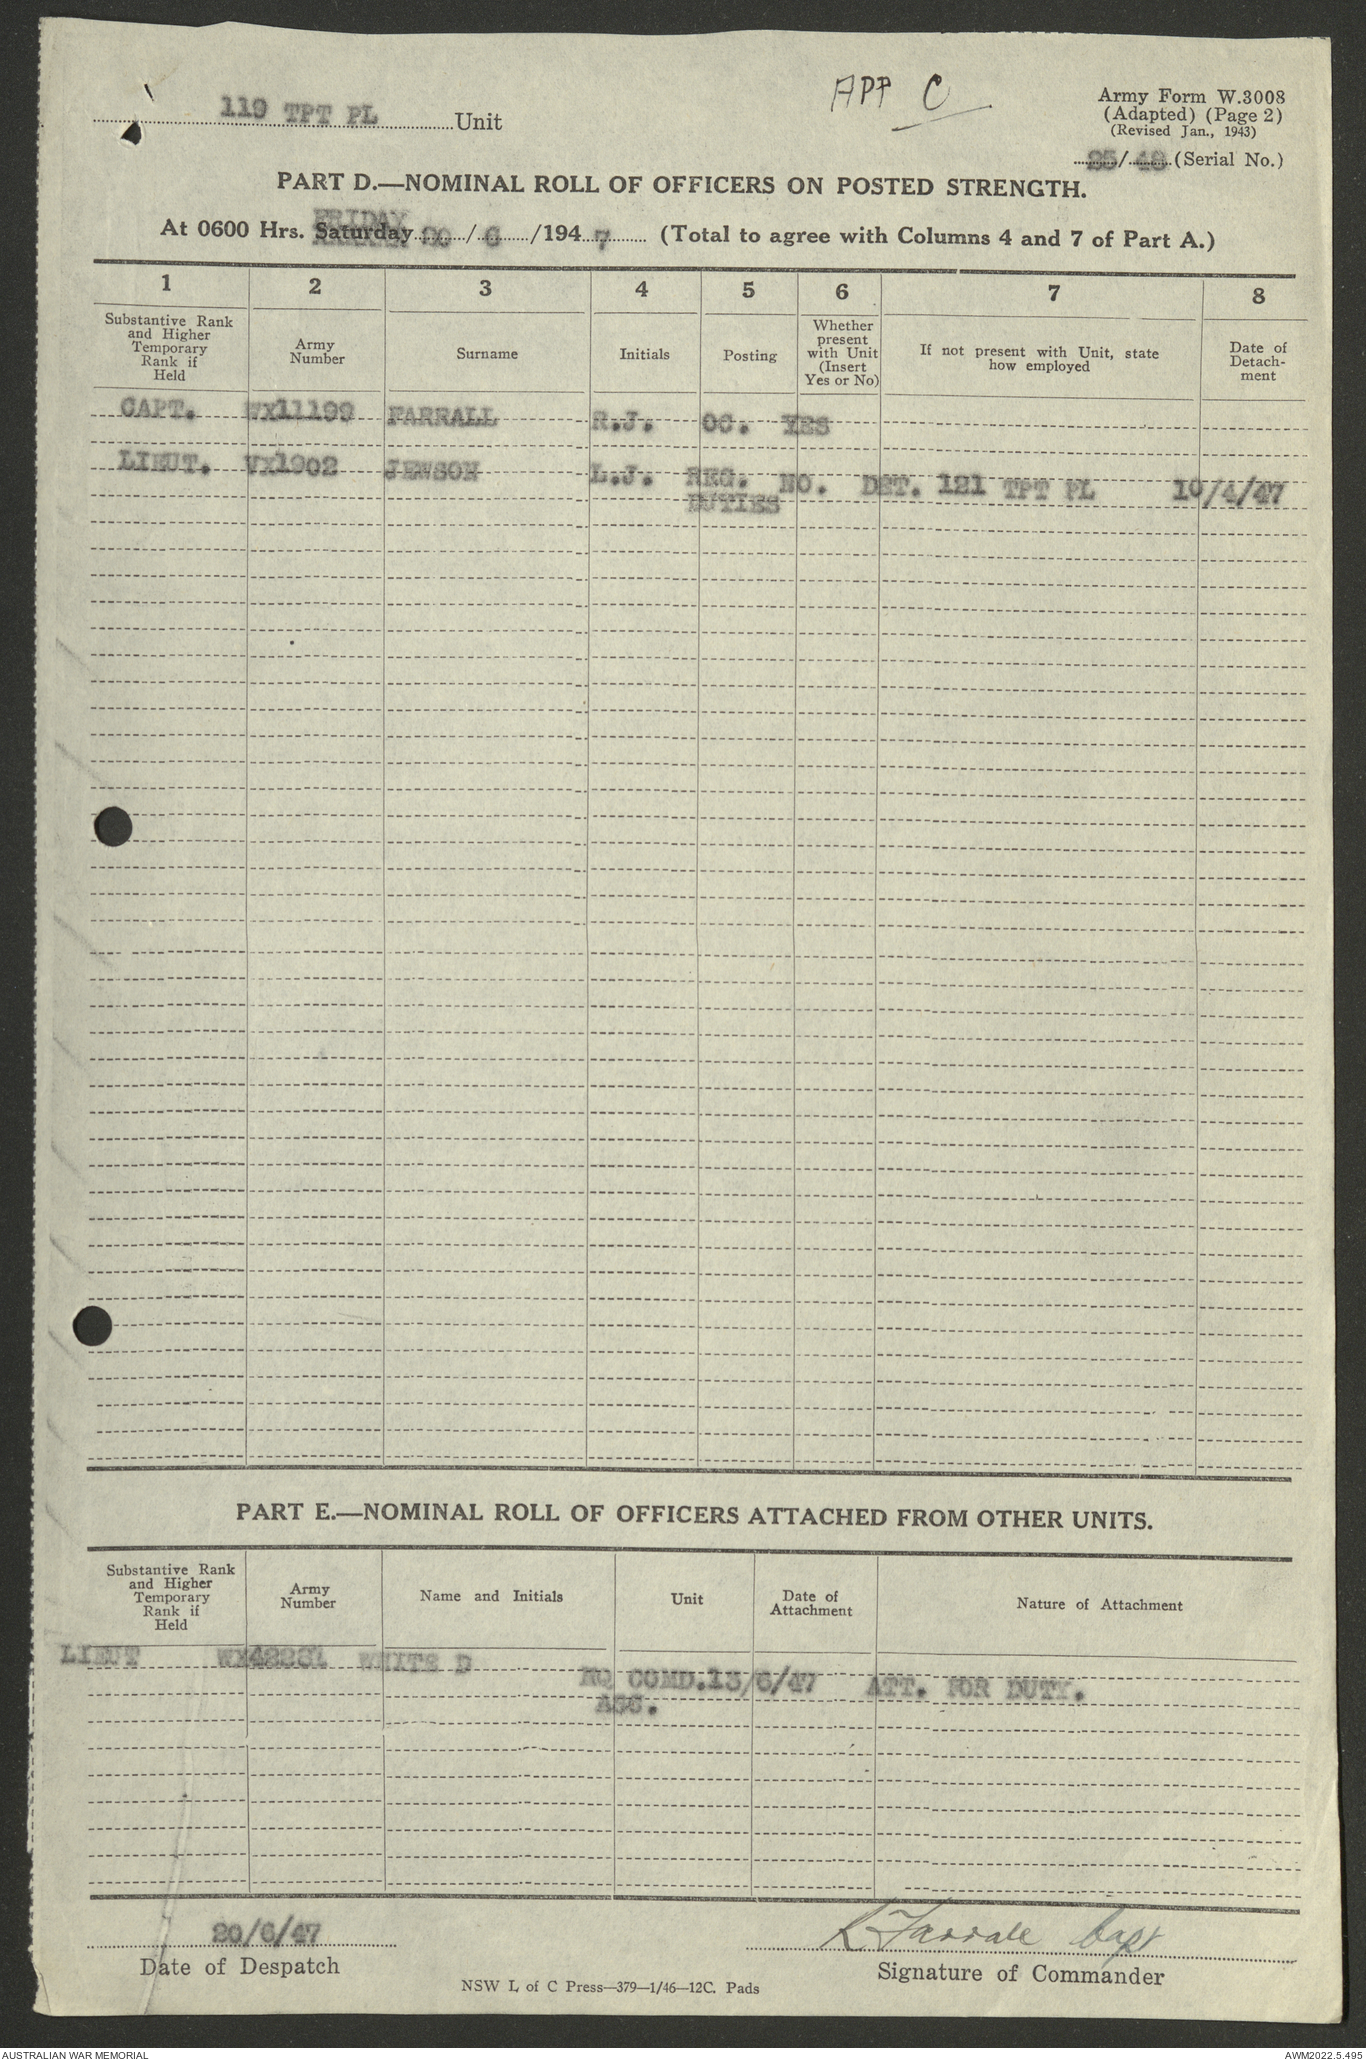 APP C
119 TPT PL Unit
Army Form W.3008
(Adapted) (Page 2)
(Revised Jan., 1943)
25/48 (Serial No.)
PART D.—NOMINAL ROLL OF OFFICERS ON POSTED STRENGTH.
FRIDAY
At 0600 Hrs. Saturday 20/6/1947 (Total to agree with Columns 4 and 7 of Part A.)
1 2 3 4 5 6 7 8
Substantive Rank and Higher Temporary Rank if Held
Army Number
Surname
Initials
Posting
Whether present with Unit (Insert Yes or No)
If not present with Unit, state how employed
Date of Detach-ment
CAPT. WX11199 FARRALL R.J. OC. YES
LIEUT. VX1902 JEWSON L.J. REG. NO. DET. 121 TPT PL 10/4/47
DUTIES
PART E.—NOMINAL ROLL OF OFFICERS ATTACHED FROM OTHER UNITS.
Substantive Rank and Higher Temporary Rank if Held
Army Number
Name and Initials
Unit
Date of Attachment
Nature of Attachment
LIEUT WHITE D HQ COMD. 13/6/47 ATT. FOR DUTY.
ASC.
20/6/47
Date of Despatch
R Farrall Capt
Signature of Commander
NSW L of C Press—379—1/46—12C. Pads
AUSTRALIAN WAR MEMORIAL
AWM2022.5.495